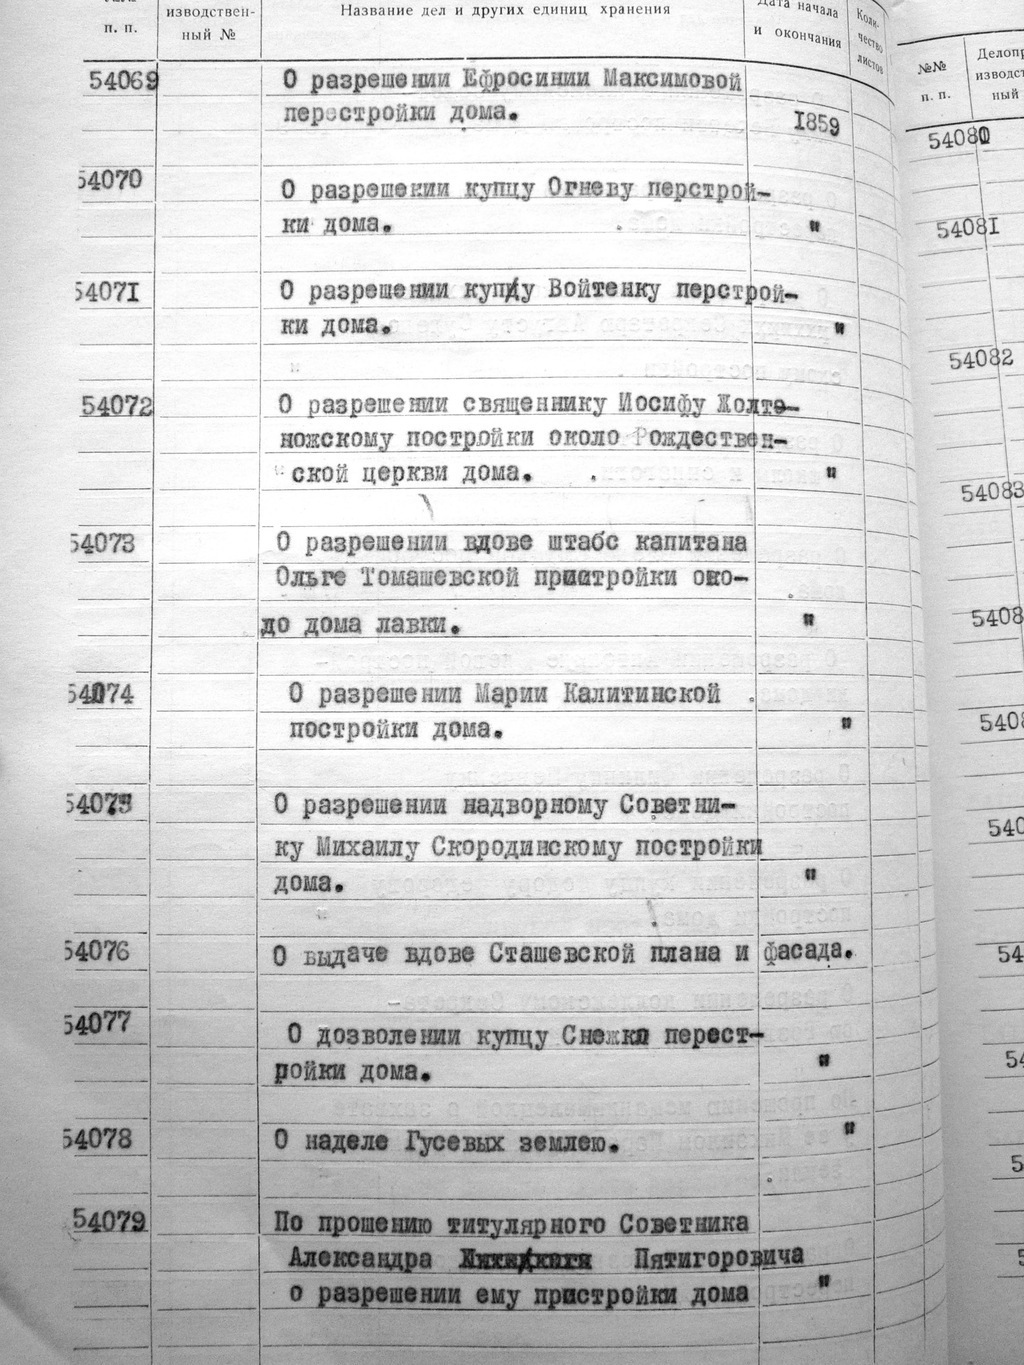 изводствен-
ный №
п. п.
Название дел и других единиц хранения
Дата начала
и окончания
Коли-
чество
листов
54069
О разрешении Ефросинии Максимовой
перестройки дома.
1859
54070
О разрешении купцу Огневу перстрой-
ки дома.
"
54071
О разрешении купцу Войтенку перстрой-
ки дома.
"
54072
О разрешении священнику Иосифу Жолто-
ножскому постройки около Рождествен-
ской церкви дома.
"
54073
О разрешении вдове штабс капитана
Ольге Томашевской пристройки око-
до дома лавки.
"
54074
О разрешении Марии Калитинской
постройки дома.
"
54075
О разрешении надворному Советни-
ку Михаилу Скородинскому постройки
дома.
"
54076
О выдаче вдове Сташевской плана и фасада.
54077
О дозволении купцу Снежко перест-
ройки дома.
"
54078
О наделе Гусевых землею.
"
54079
По прошению титулярного Советника
Александра Пятигоровича
о разрешении ему пристройки дома
"
№№
п. п.
Делопр
изводст
ный
54080
54081
54082
54083
5408
5408
540
54
54
5
5